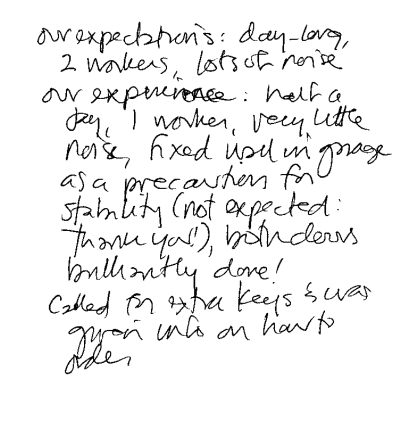 our expectations: day-long,
2 workers, lots of noise
our experience: half a
day, 1 worker, very little
noise, fixed wall in garage
as a precaution for
stability (not expected:
thank you!), both doors
brilliantly done!
Called for extra keys & was
given info on how to
order